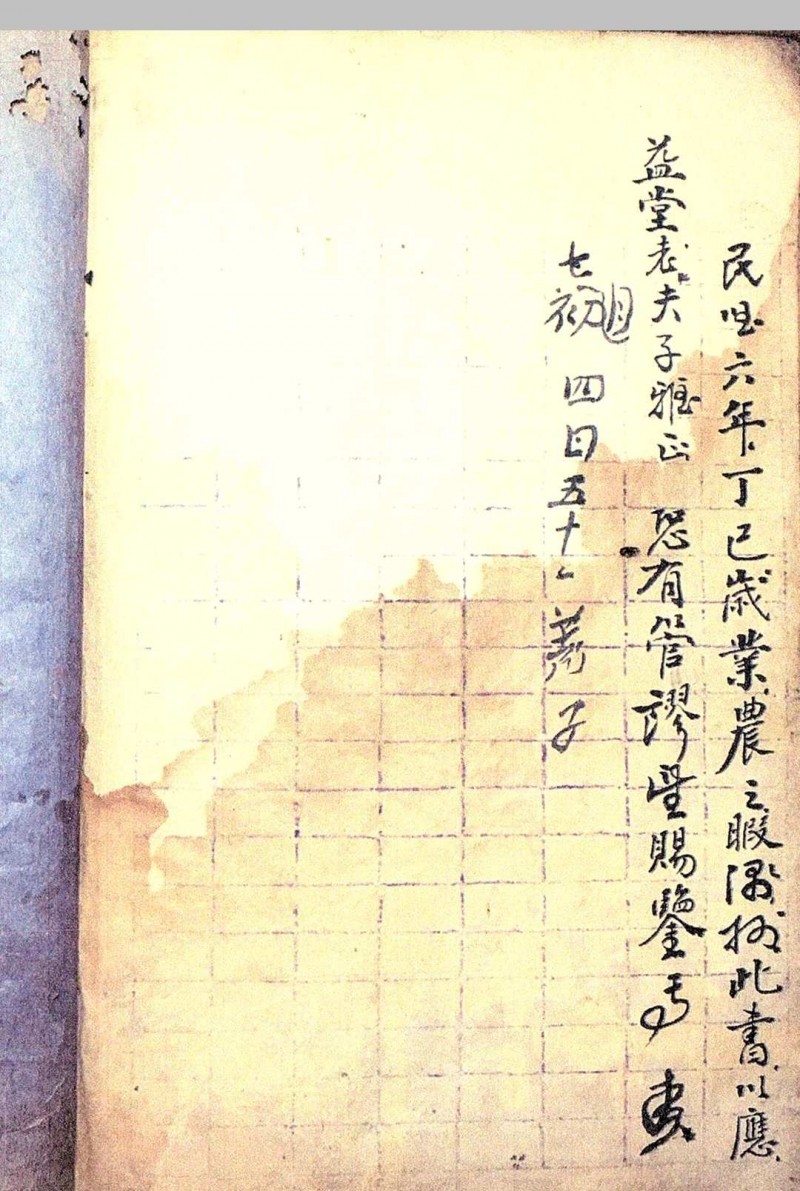 民国六年丁巳歳業農之暇隙抄此書以應
益堂老夫子雅正 恐有管謬望賜鑒焉
七月初四日五十一 子